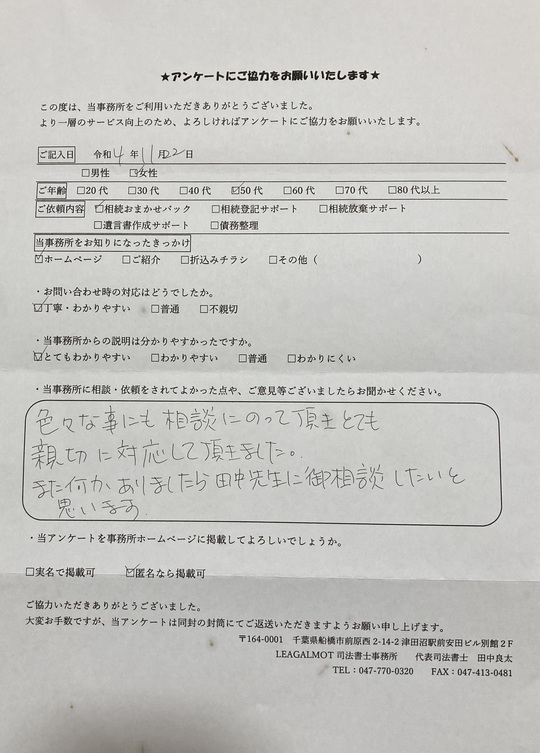 ★アンケートにご協力をお願いいたします★
この度は、当事務所をご利用いただきありがとうございました。
より一層のサービス向上のため、よろしければアンケートにご協力をお願いいたします。
ご記入日 令和4年11月22日
□男性 ☑女性
ご年齢 □20代 □30代 □40代 ☑50代 □60代 □70代 □80代以上
ご依頼内容 ☑相続おまかせパック □相続登記サポート □相続放棄サポート
□遺言書作成サポート □債務整理
当事務所をお知りになったきっかけ
☑ホームページ □ご紹介 □折込みチラシ □その他( )
・お問い合わせ時の対応はどうでしたか。
☑丁寧・わかりやすい □普通 □不親切
・当事務所からの説明は分かりやすかったですか。
☑とてもわかりやすい □わかりやすい □普通 □わかりにくい
・当事務所に相談・依頼をされてよかった点や、ご意見等ございましたらお聞かせください。
色々な事にも相談にのって頂きとても
親切に対応して頂きました。
また何かありましたら田中先生に御相談したいと
思います。
・当アンケートを事務所ホームページに掲載してよろしいでしょうか。
□実名で掲載可 ☑匿名なら掲載可
ご協力いただきありがとうございました。
大変お手数ですが、当アンケートは同封の封筒にてご返送いただきますようお願い申し上げます。
〒164-0001 千葉県船橋市前原西2-14-2津田沼駅前安田ビル別館2F
LEAGALMOT司法書士事務所 代表司法書士 田中良太
TEL:047-770-0320 FAX:047-413-0481